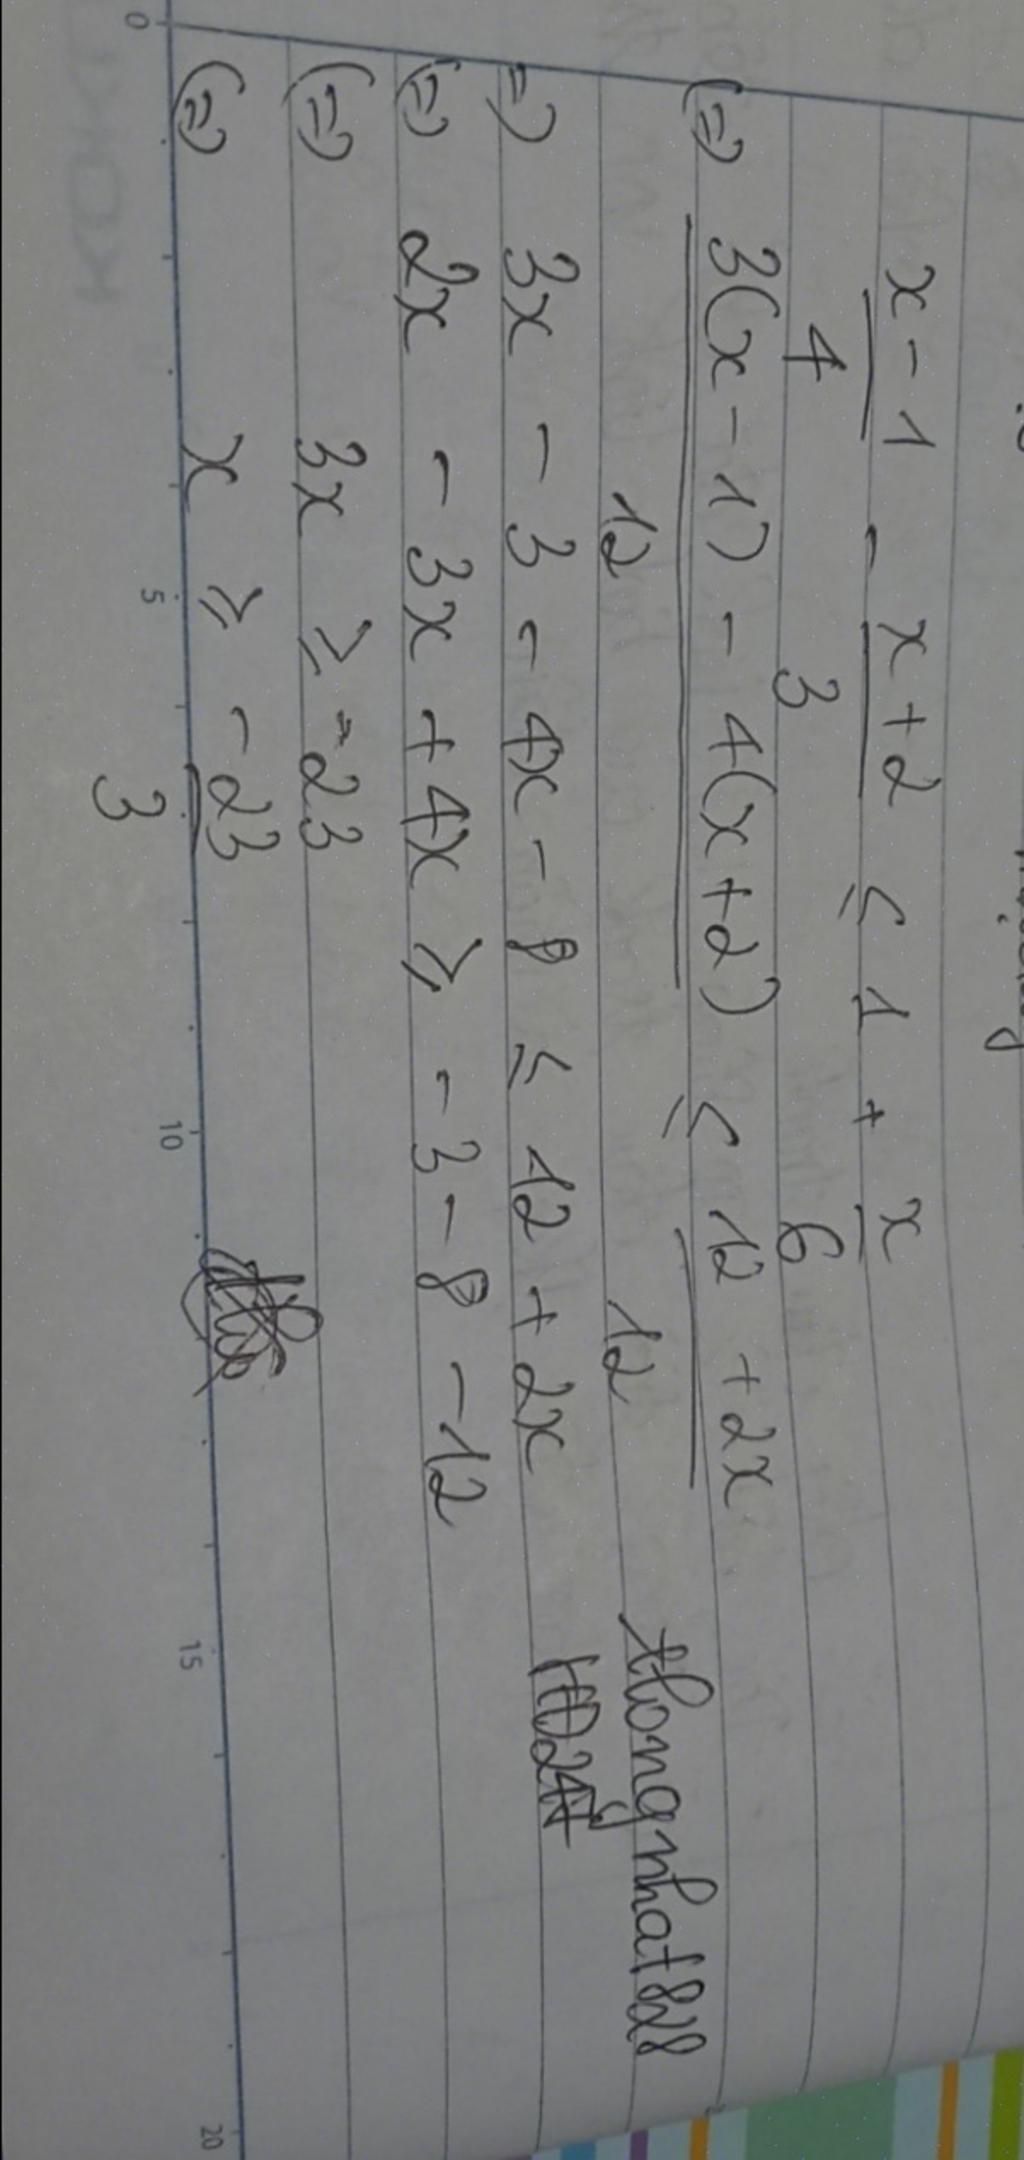 x - 1 - x + 2 ≤ 1 + x
4 3 6
(=) 3(x - 1) - 4(x + 2) ≤ 12 + 2x
12 12
thongnhat828
=) 3x - 3 - 4x - 8 ≤ 12 + 2x
(=) 2x - 3x + 4x ≥ - 3 - 8 - 12
(=) 3x ≥ -23
(=) x ≥ - 23
3
0 5 10 15 20